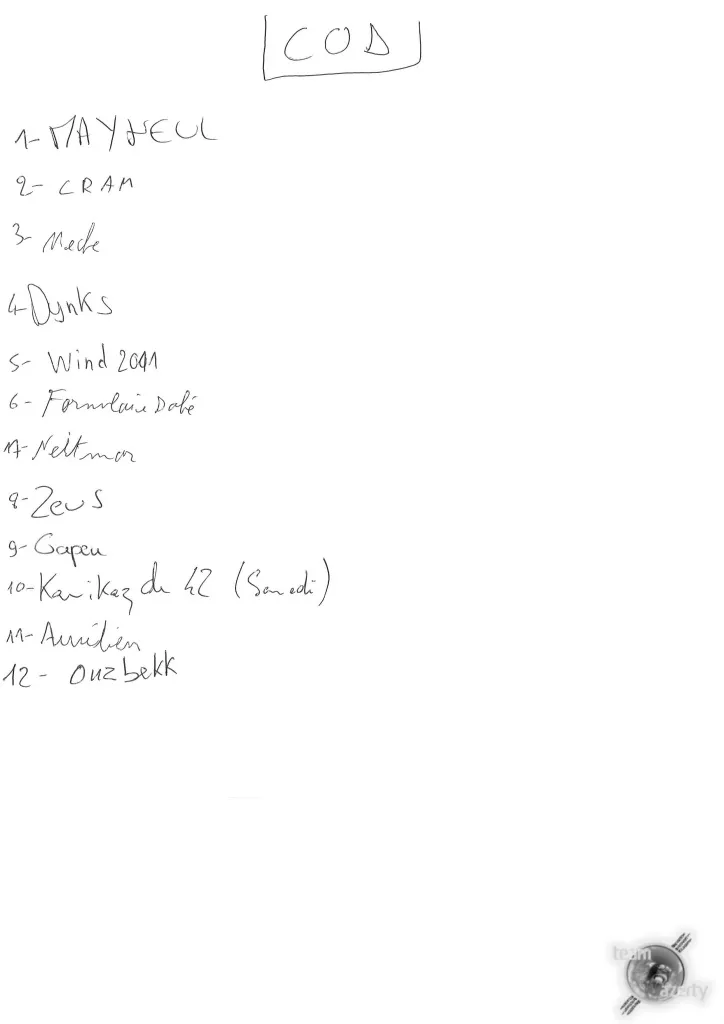 COD
1- MAYNEUL
2- CRAM
3-
4- Dynks
5- Wind 2041
6- Formulaire Daté
7- Neitmar
8- Zeus
9- Gapeu
10- Kamikaz du 42 (Samedi)
11- Aurélien
12- Ouzbekk
team
azerty